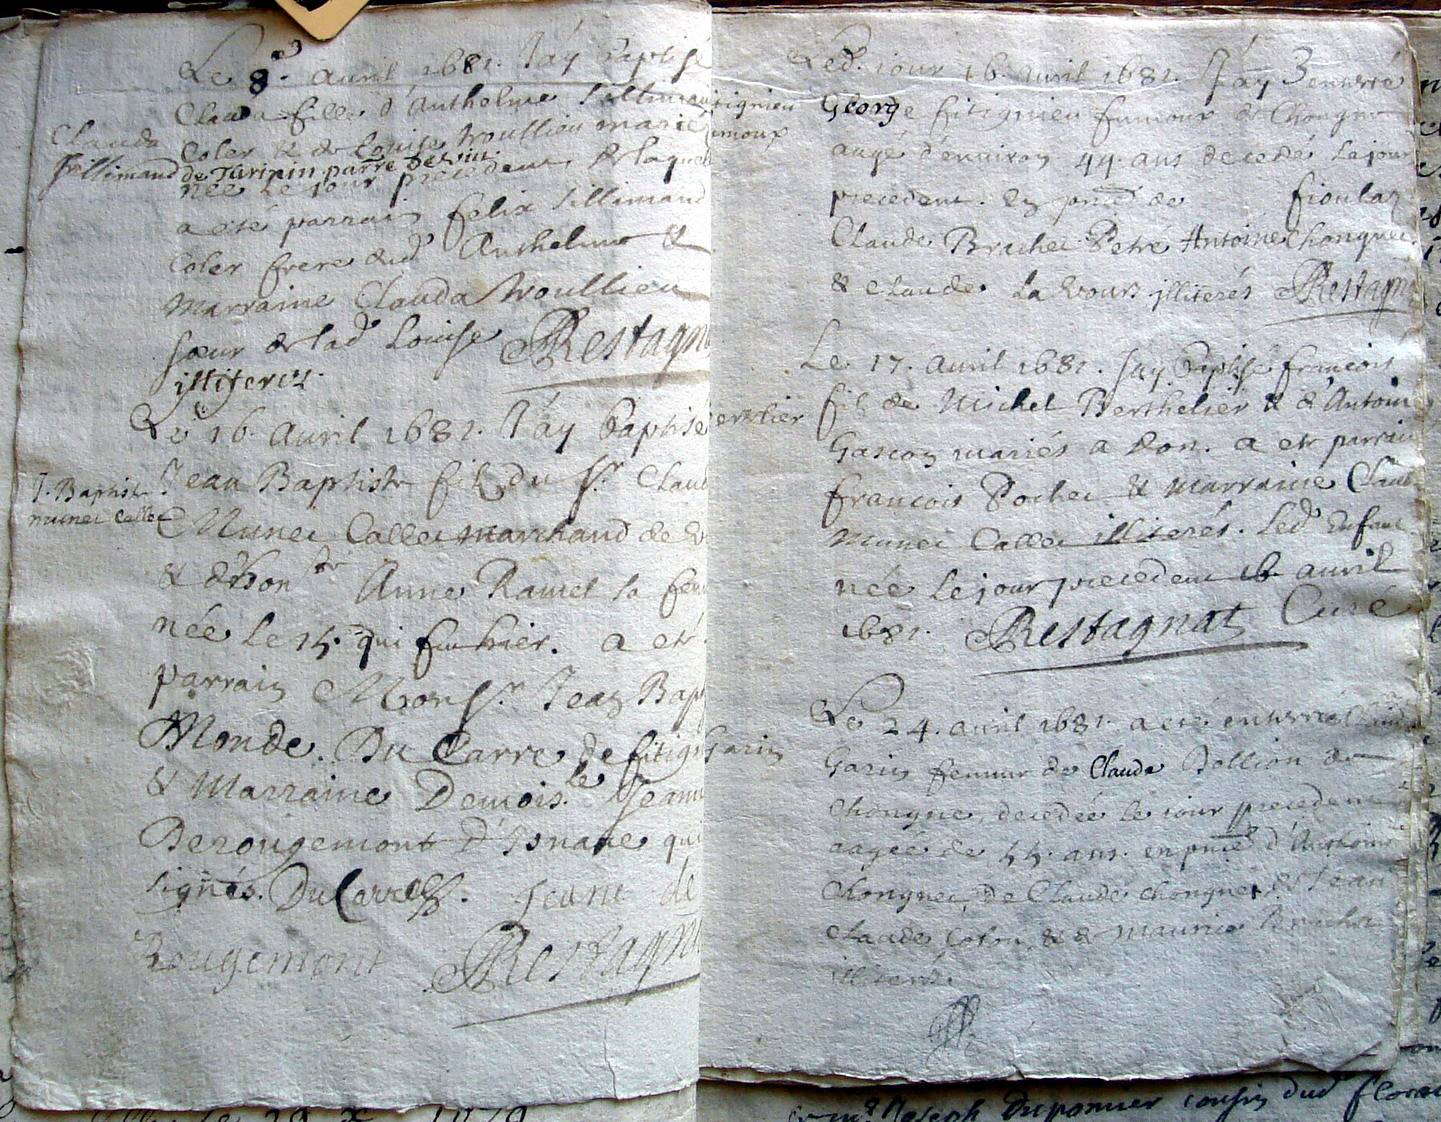 Le 8e. avril 1681. J'ay Baptisé
Clauda fille d'Anthelme
Clauda
fillimand
Coler & de Louise Troullieu mariés
de Turipin parre
née le jour precedent & laquel
a eté parrain felix fillimand
Coler frere dud Anthelme &
Marraine Clauda Troullieu
sœur de lad Louise Restagn
illiterés.
Le 16. Avril 1681. J'ay baptisé
J. Baptiste
munet callet
Jean Baptiste fils du Sr. Claud
Munet Callet marchand de
& d'hon Anne Ramel sa fem
née le 15. qui fut hier. a eté
parrain Monsr. Jean Bap
Monde. Du Carre de fitig
& Marraine Demoislle Jeann
Derougemont d' qui
signés. DuCarre. Jeane de
Rougemont Restagn
Led. jour 16. avril 1681. J'ay enterré
tignieu
George fitignieu fumoux de Chongne
umoux
auge d'environ 44. ans decedé le jour
precedent. En pnce de fioulaz
Claude Brachet Petré Antoine Chongnet
& Claude La illiterés Restagn
Le 17. avril 1681. J'ay Baptisé françois
fils de Michel Berthelier & d'Antoin
ertelier
Gascon mariés a don. a eté parrain
françois Pochet & marraine Clau
Munet Callet illiterés. Led Enfant
née le jour precedent 16 avril
1681. Restagnat Curé
Le 24. avril 1681. a eté enterrée
Garin
Garin femme de Claude Bollion de
Chongne, decedée le jour precedent
aagée de 55. ans. en pnce d'Anthoine
Chongnet, de Claude Chongnet, & Jean
Claude & de Maurice Brachet
illiterés.
Joseph Duponnier cousin dud